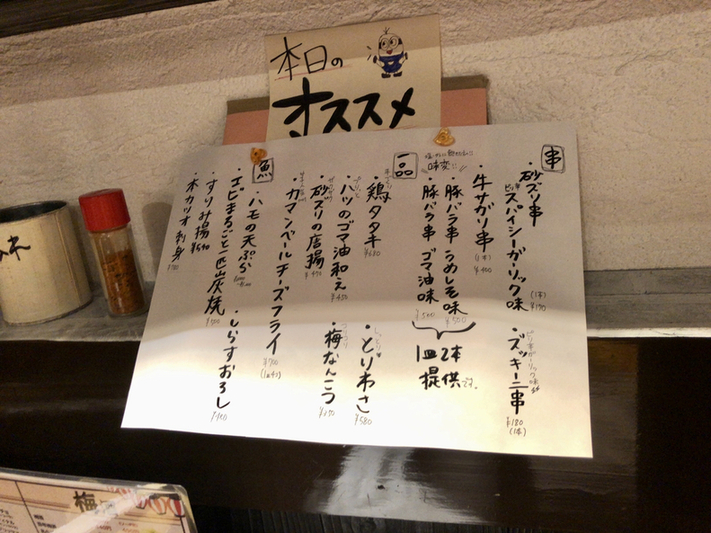 本日の
オススメ
串
・砂ズリ串
スパイシーガーリック味
(1本)
¥170
・ズッキーニ串
¥180
(1本)
・牛サガリ串
(1本)
¥400
味変に!!
・豚バラ串 うめしそ味
¥500
・豚バラ串 ゴマ油味
¥500
1皿2本
提供です。
一品
・鶏タタキ
¥680
・とりわさ
¥580
・ハツのゴマ油和え
¥450
・砂ズリの唐揚
¥490
・梅なんこつ
¥350
・カマンベールチーズフライ
¥700
魚
・ハモの天ぷら
・エビまるごと一匹炭焼
¥500
・しらすおろし
・すりみ揚
¥590
・本カツオ刺身
梅